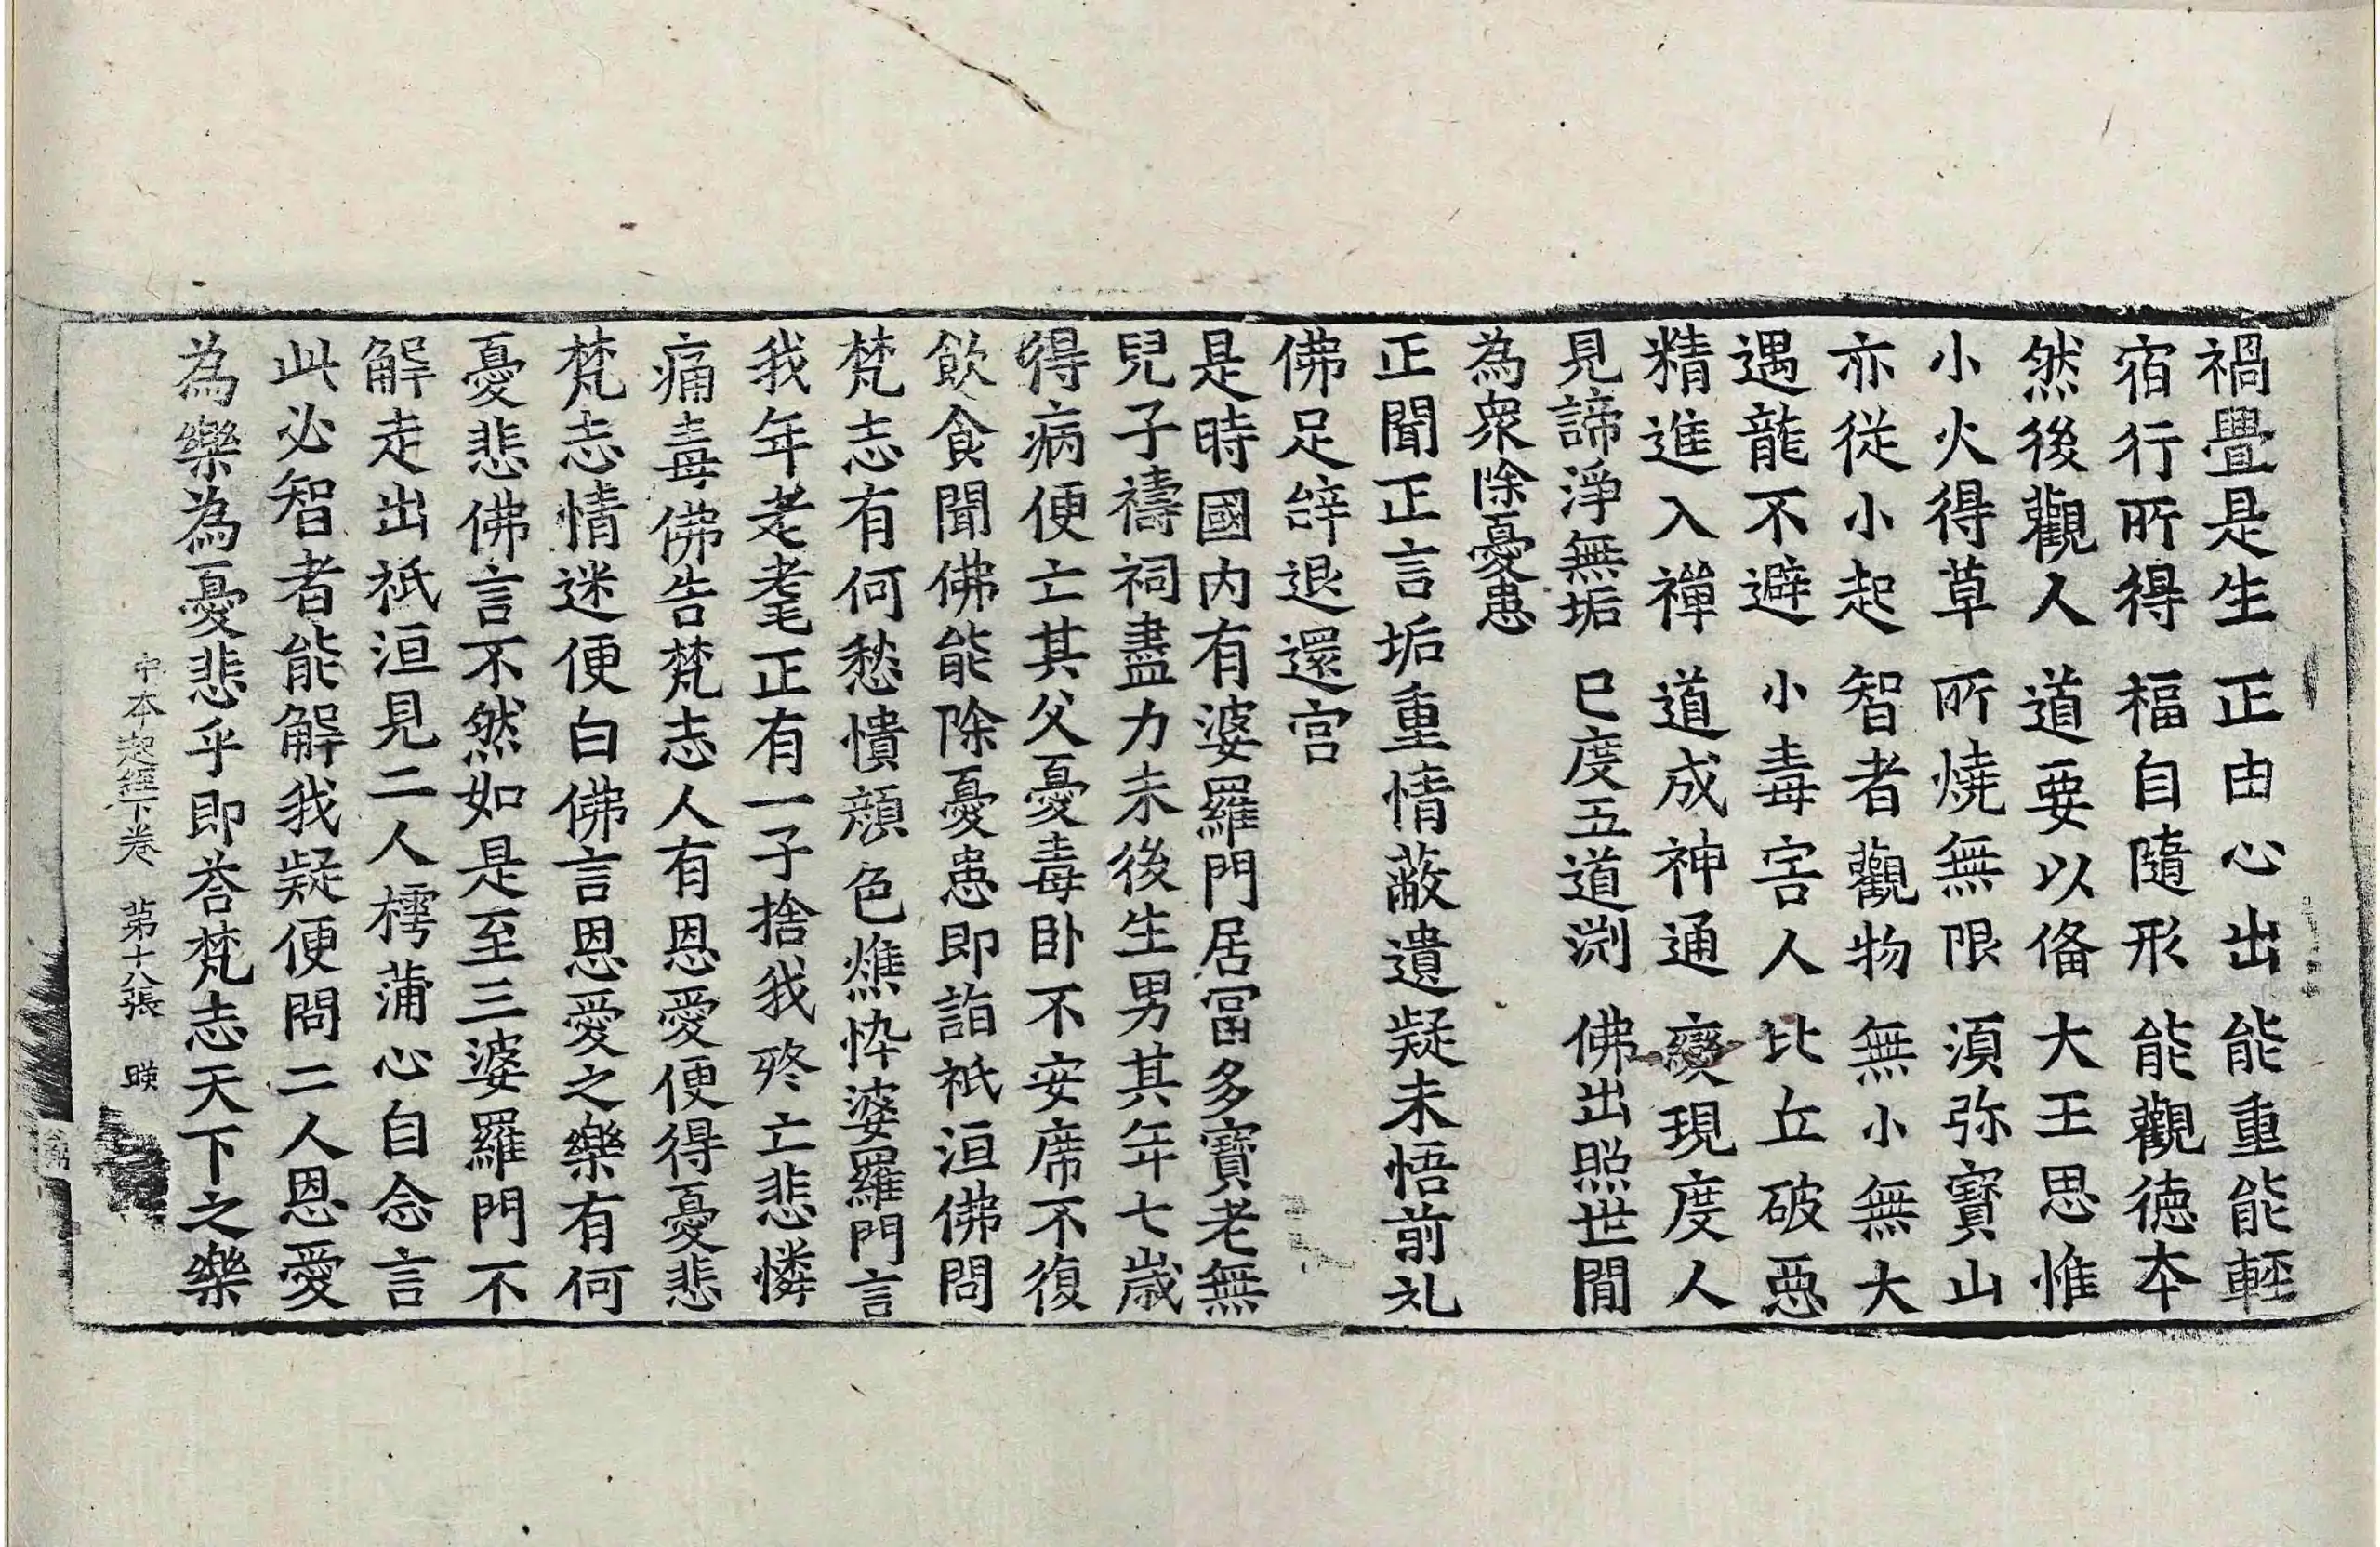 禍疊是生　正由心出　能重能輕
宿行所得　福自隨形　能觀德本
然後觀人　道要以俻　大王思惟
小火得草　所燒無限　湏弥寶山
亦從小起　智者觀物　無小無大
遇龍不避　小毒害人　比丘破惡
精進入禪　道成神通　變現度人
見諦淨無垢　已度五道渕　佛出照世間
為衆除憂患
正聞正言垢重情蔽遺疑未悟前礼
佛足辝退還宫
是時國内有婆羅門居冨多寶老無
兒子禱祠盡力未後生男其年七歲
得病便亡其父憂毒卧不安席不復
飲食聞佛能除憂患即詣祇洹佛問
梵志有何愁憒顔色燋悴婆羅門言
我年老耄正有一子捨我終亡悲憐
痛毒佛告梵志人有恩愛便得憂悲
梵志情迷便白佛言恩愛之樂有何
憂悲佛言不然如是至三婆羅門不
解走出祇洹見二人樗蒲心自念言
此必智者能解我疑便問二人恩愛
為樂為憂悲乎即荅梵志天下之樂
中本起經下卷　第十八張　暎